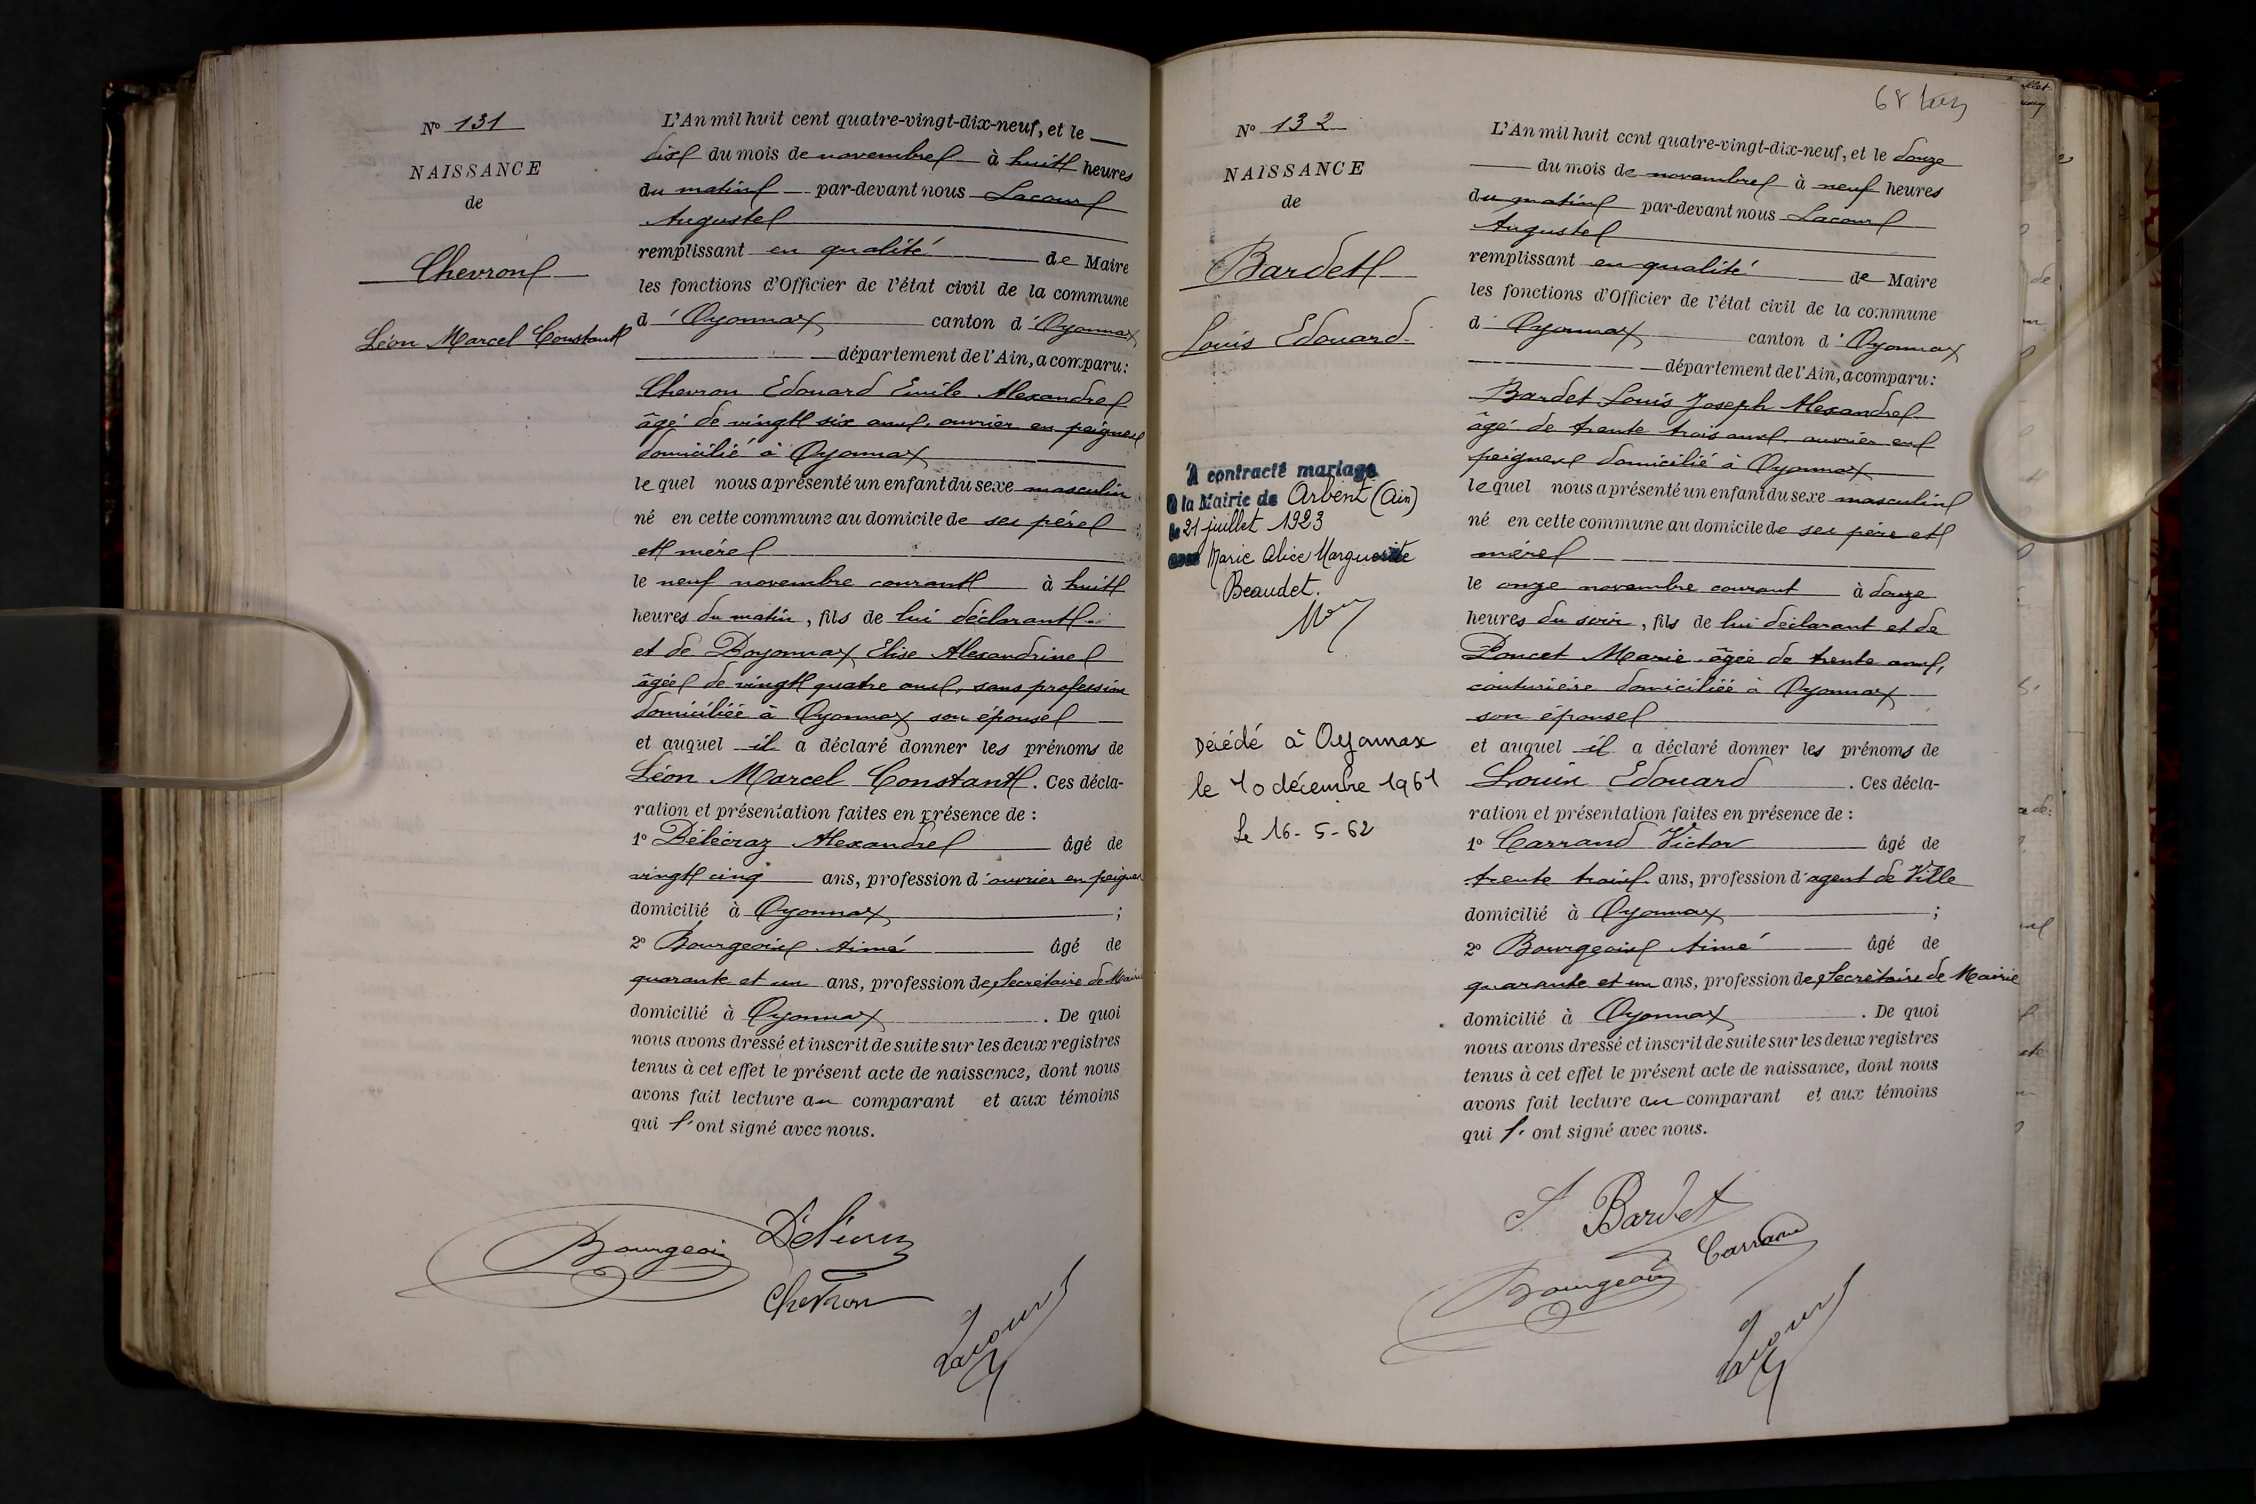 N° 131
NAISSANCE
de
Chevron
Léon Marcel Constant
L'An mil huit cent quatre-vingt-dix-neuf, et le
dix du mois de novembre à huit heures
du matin par-devant nous Lacour
Auguste
remplissant en qualité de Maire
les fonctions d'Officier de l'état civil de la commune
d'Oyonnax canton d'Oyonnax
département de l'Ain, a comparu:
Chevron Edouard Emile Alexandre
âgé de vingt six ans, ouvrier en peignes
domicilié à Oyonnax
lequel nous a présenté un enfant du sexe masculin
né en cette commune au domicile de ses père
et mère
le neuf novembre courant à huit
heures du matin, fils de lui déclarant
et de Boyonnax Elise Alexandrine
âgée de vingt quatre ans, sans profession
domiciliée à Oyonnax son épouse
et auquel il a déclaré donner les prénoms de
Léon Marcel Constant. Ces décla-
ration et présentation faites en présence de :
1° Délécraz Alexandre âgé de
vingt cinq ans, profession d'ouvrier en peignes
domicilié à Oyonnax ;
2° Bourgeois Aimé âgé de
quarante et un ans, profession de Secrétaire de Mairie
domicilié à Oyonnax. De quoi
nous avons dressé et inscrit de suite sur les deux registres
tenus à cet effet le présent acte de naissance, dont nous
avons fait lecture au comparant et aux témoins
qui l'ont signé avec nous.
Bourgeois
Chevron
Lacour
68
N° 132
NAISSANCE
de
Bardet
Louis Edouard.
A contracté mariage
à la Mairie de Arbent (Ain)
le 21 juillet 1923
avec Marie Alice Marguerite
Beaudet.
Décédé à Oyonnax
le 10 décembre 1961
Le 16-5-62
L'An mil huit cent quatre-vingt-dix-neuf, et le douze
du mois de novembre à neuf heures
du matin par-devant nous Lacour
Auguste
remplissant en qualité de Maire
les fonctions d'Officier de l'état civil de la commune
d'Oyonnax canton d'Oyonnax
département de l'Ain, a comparu:
Bardet Louis Joseph Alexandre
âgé de trente trois ans, ouvrier en
peignes domicilié à Oyonnax
lequel nous a présenté un enfant du sexe masculin
né en cette commune au domicile de ses père et
mère
le onze novembre courant à douze
heures du soir, fils de lui déclarant et de
Poncet Marie âgée de trente ans,
couturière domiciliée à Oyonnax
son épouse
et auquel il a déclaré donner les prénoms de
Louis Edouard. Ces décla-
ration et présentation faites en présence de :
1° Carrand Victor âgé de
trente trois ans, profession d'agent de Ville
domicilié à Oyonnax ;
2° Bourgeois Aimé âgé de
quarante et un ans, profession de Secrétaire de Mairie
domicilié à Oyonnax. De quoi
nous avons dressé et inscrit de suite sur les deux registres
tenus à cet effet le présent acte de naissance, dont nous
avons fait lecture au comparant et aux témoins
qui l'ont signé avec nous.
Bardet
Carrand
Bourgeois
Lacour